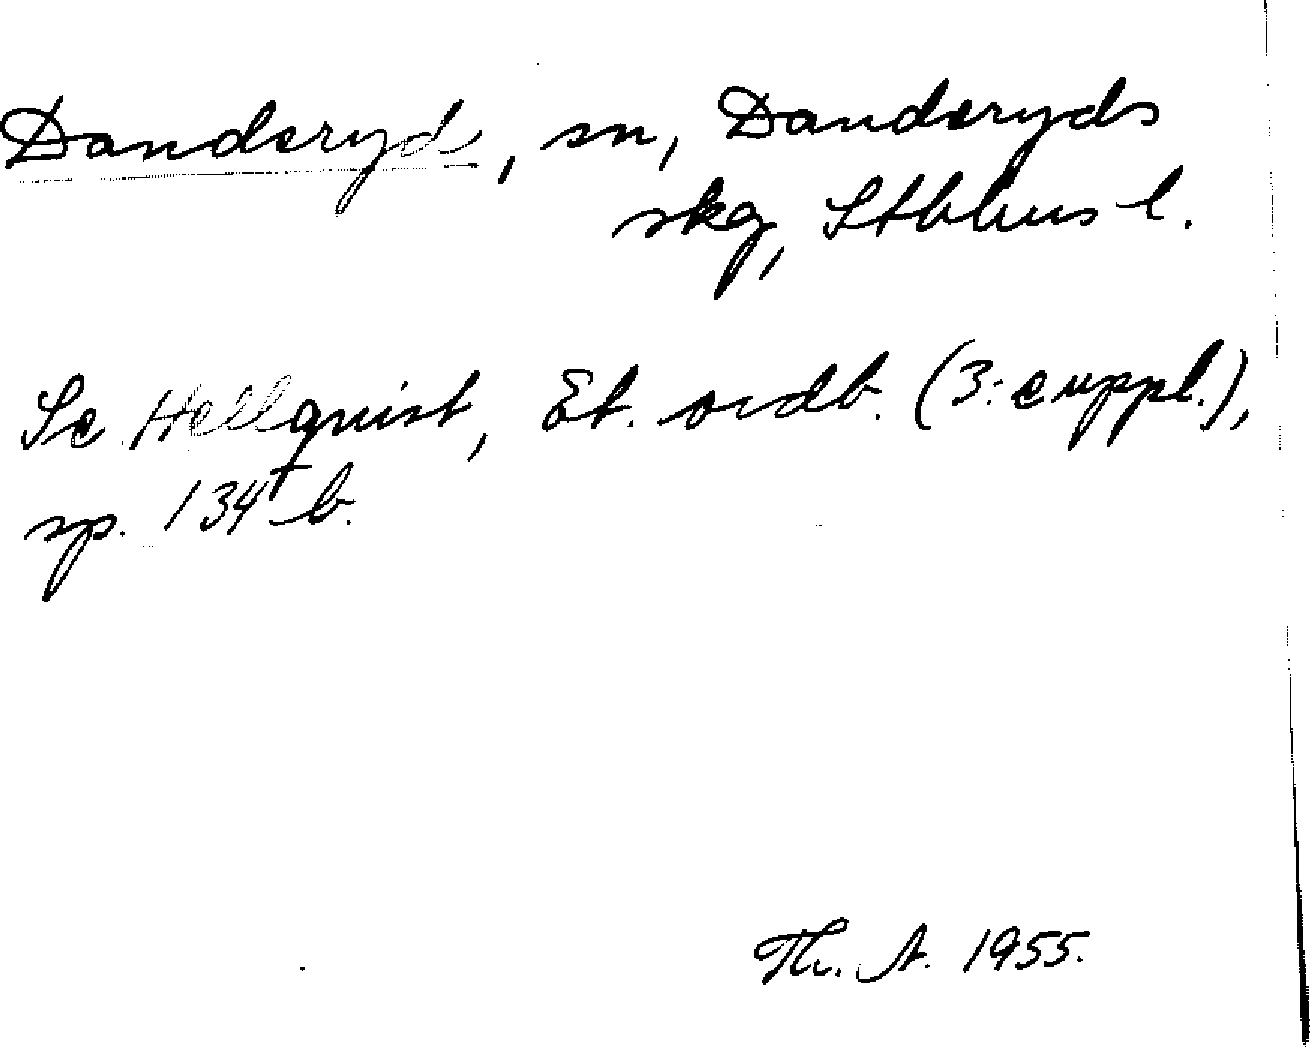 Danderyds, sn, Danderyds
skg, Stbhus l.
Se Hellquist, Et. ordb. (3: e uppl.),
sp. 134 b.
Th. A. 1955.